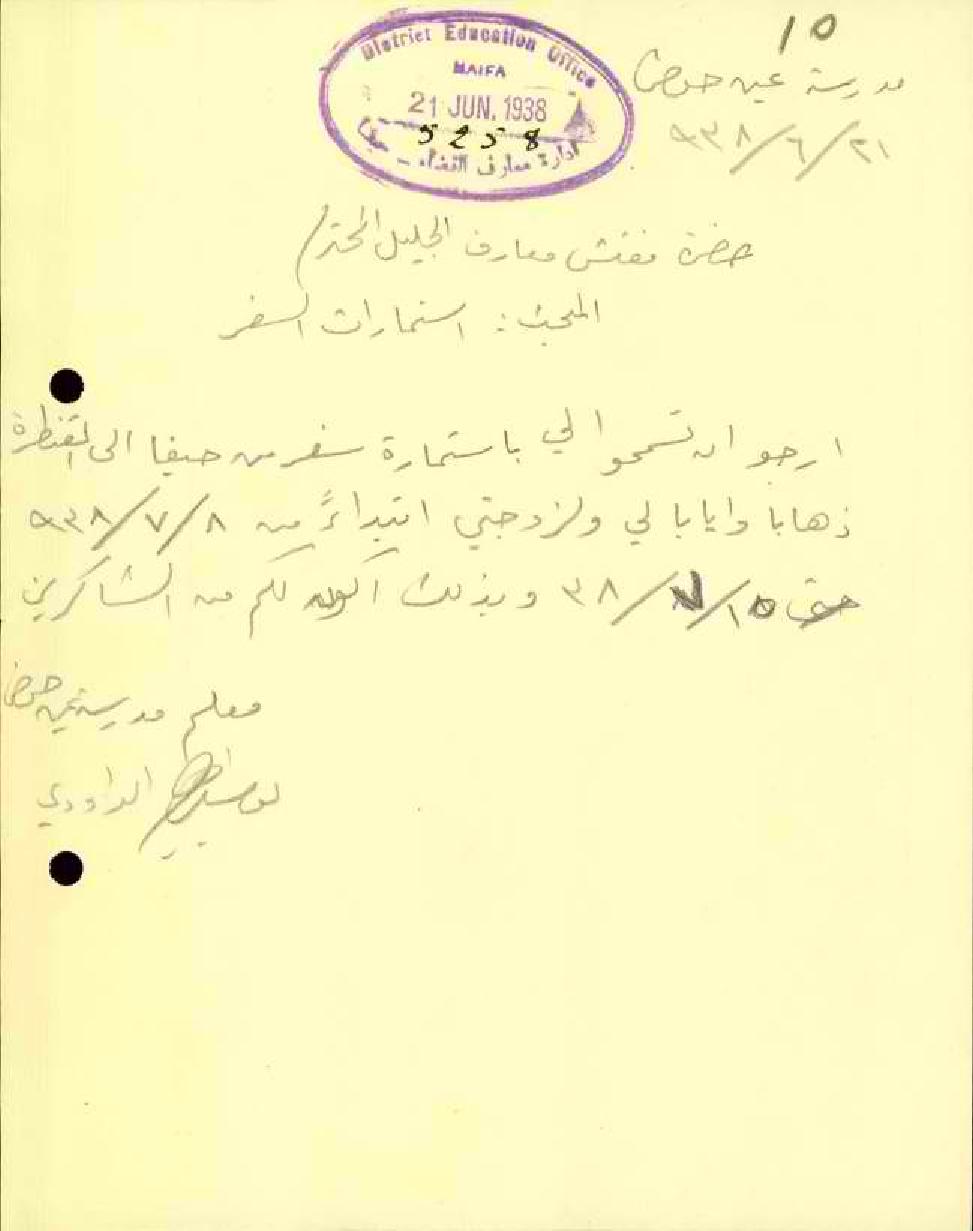 ١٥
District Education Office
HAIFA
21 JUN. 1938
5258
ادارة معارف القضاء - حيفا
مدرسة عين حوض
٩٣٨/٦/٢١
حضرة مفتش معارف الجليل المحترم
المبحث: استمارات السفر
ارجو ان تسمحوا لي باستمارة سفر من حيفا الى القنطرة
ذهابا وايابا لي ولزوجتي ابتداءً من ٩٣٨/٧/٨
حتى ٣٨/٧/١٥ وبذلك اكون لكم من الشاكرين
معلم مدرسة عين حوض
الداودي